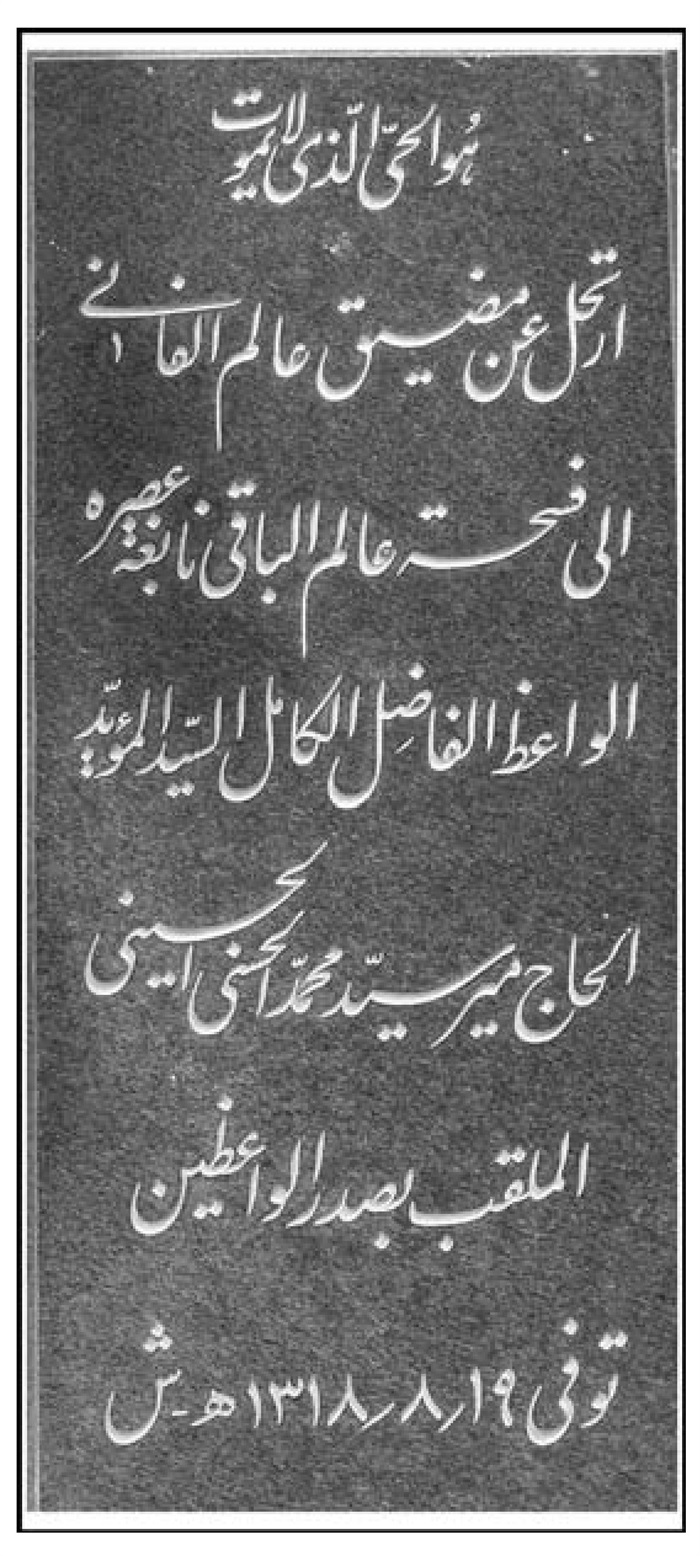 هُو الحیّ الّذی لایموت
ارتحل عن مضیق عالم الفانی
الی فسحة عالم الباقی نابغة عصره
الواعظ الفاضِل الکامل السیّد المؤیّد
الحاج میر سیّد محمّد الحسنی الحسینی
الملقب بصدر الواعظین
توفی ۱۹؍۸؍۱۳۱۸ هـ ش